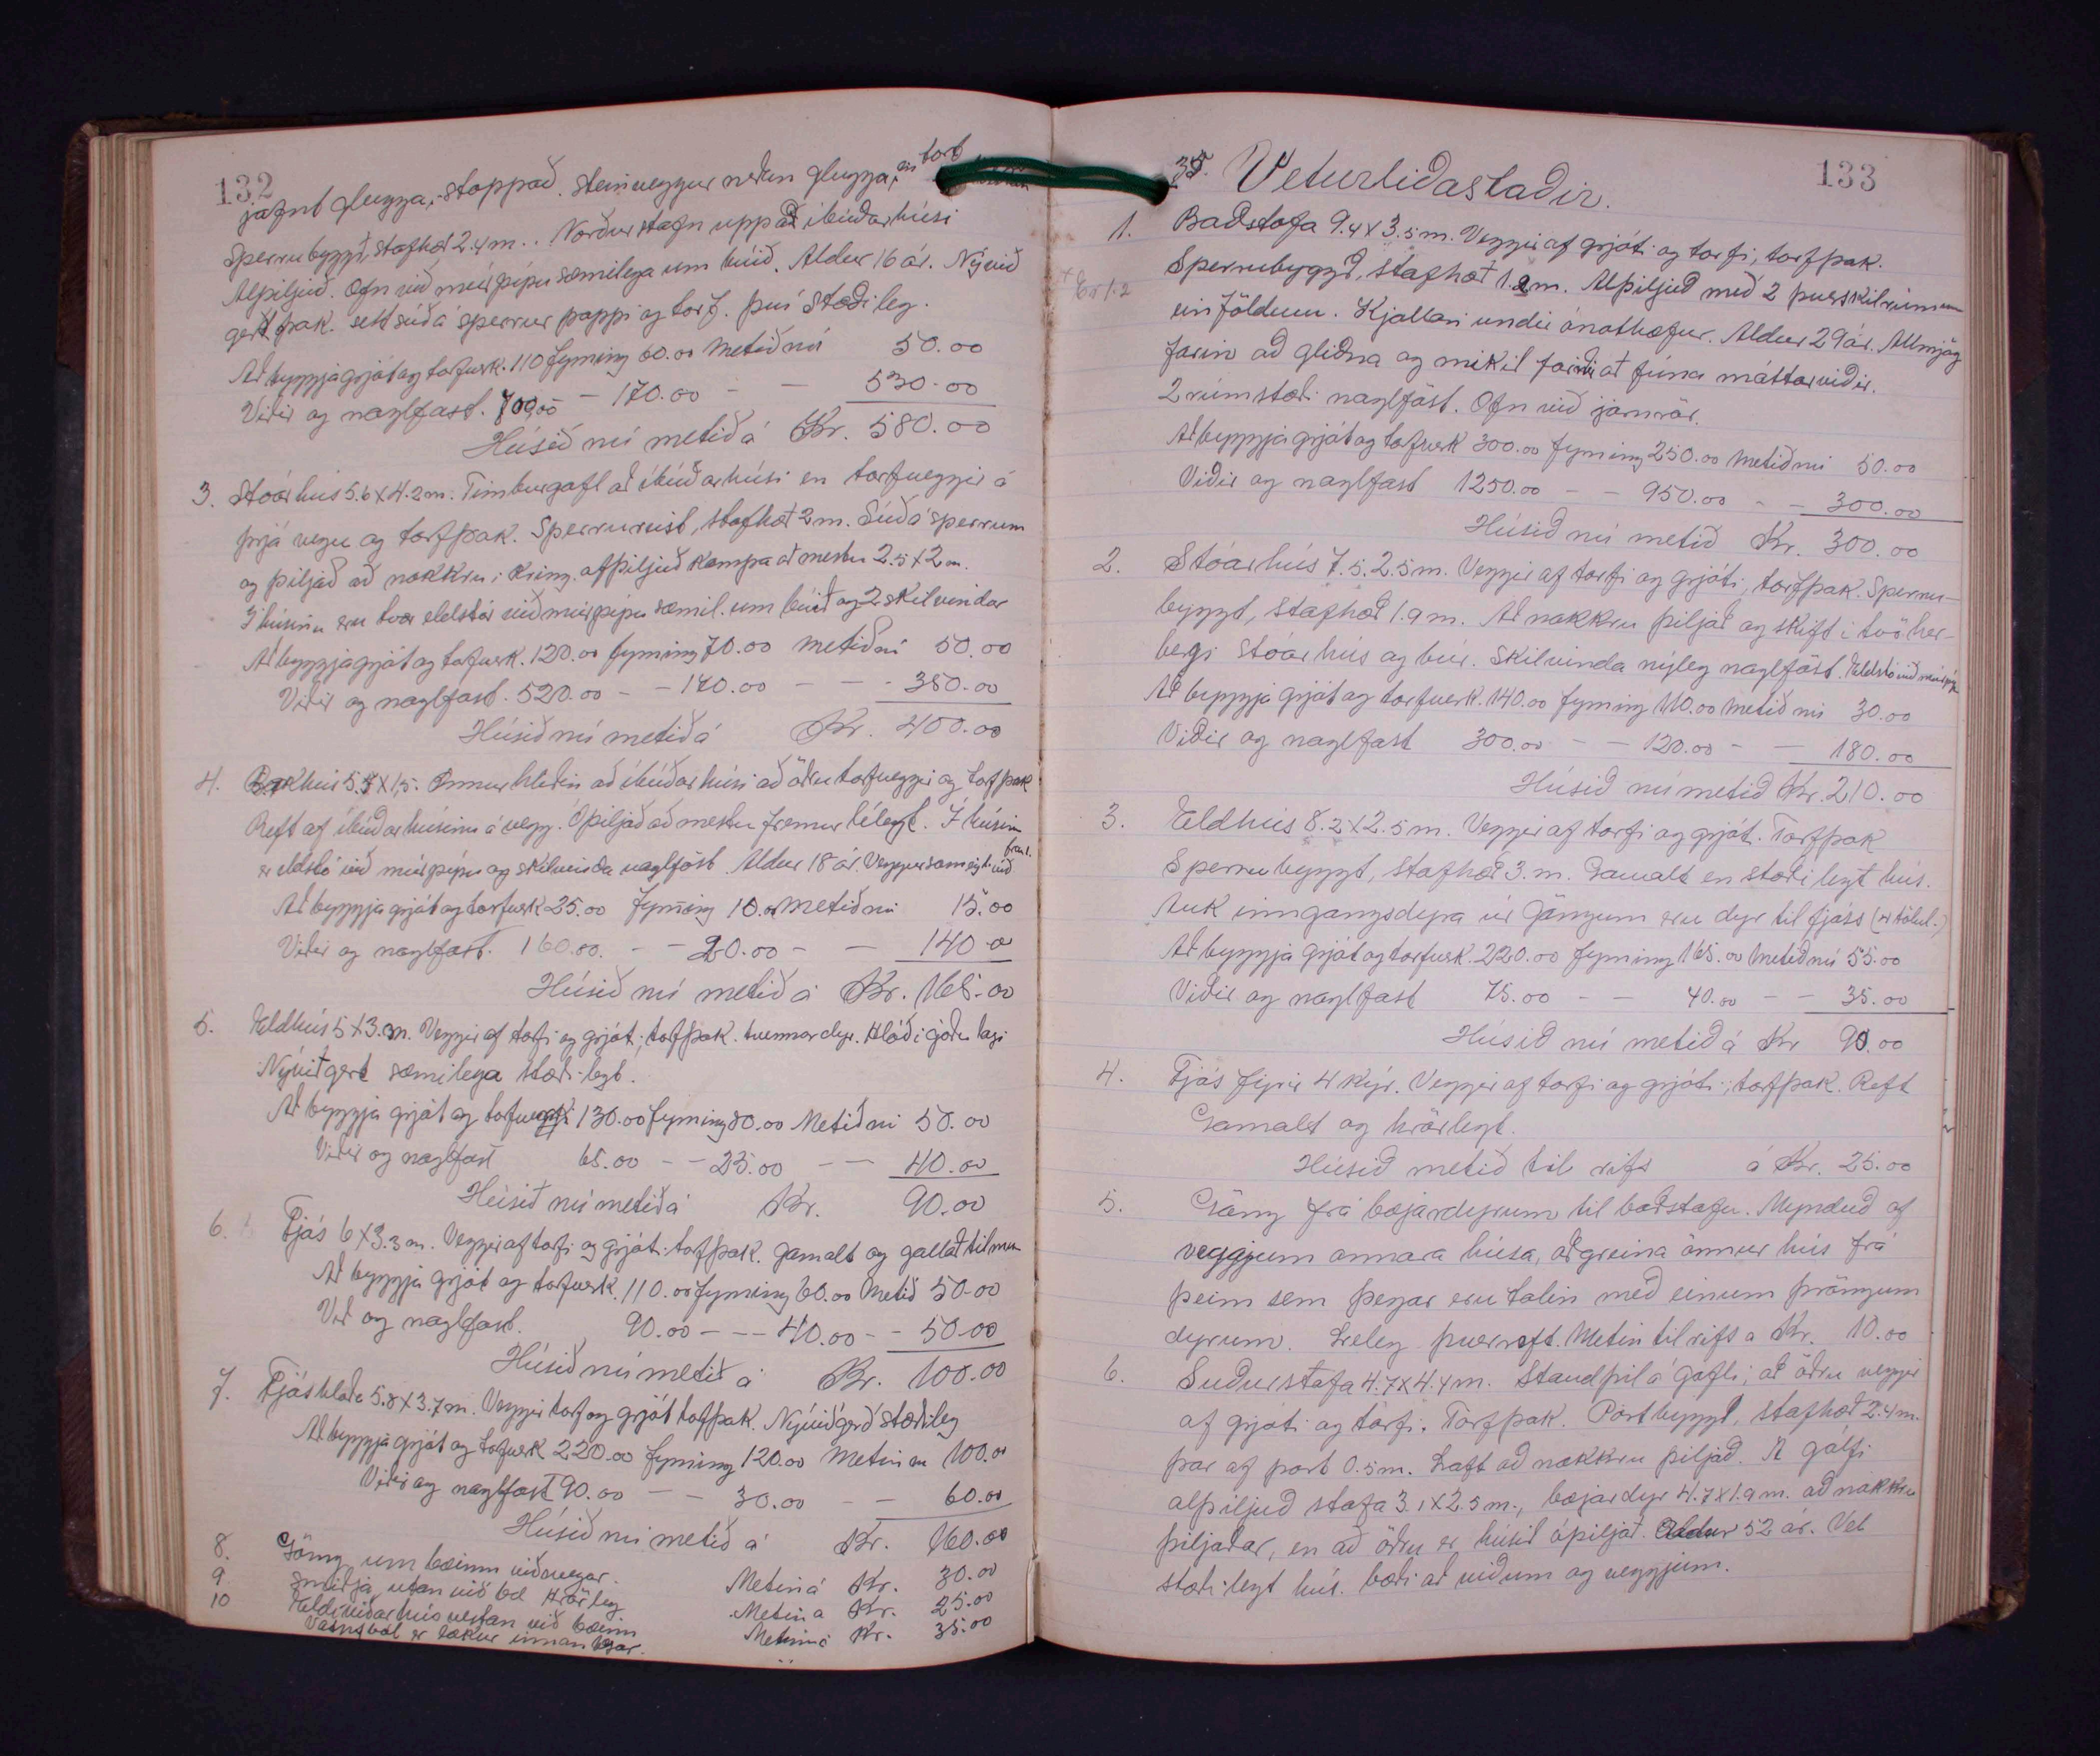 132
jafnt glugga, stoppað. Steinveggur neðan glugga, en torf
Sperrubyggt, stafhæð 2.4 m.. Norðurstafn uppað íbúðarhúsi
Alþiljuð. Ofn við múrpípu sæmilega um búið. Aldur 16 ár. Nývið
gert þak. sett súð á sperrur pappi og torf. því stæðileg.
Að byggja grjót og torfverk. 110 fyrning 60.00 Metið nú 50.00
Viðir og naglfast. 700,00 - 170.00 - - 530.00
Húsið nú metið á Kr. 580.00
3. Stóarhús 5.6 x 4.2 m. Timburgafl að íbúðarhúsi en torfveggir á
þrjá vegu og torfþak. Sperrureist, stafhæð 2 m. Súð á sperrum
og þiljað að nokkru í kring. afþiljuð kompa að mestu 2.5 x 2 m.
Í húsinu eru tvær eldstór við múrpípu sæmil. um búið og 2 skilvindar
Að byggja grjót og torfverk. 120.00 fyrning 70.00 metið nú 50.00
Viðir og naglfast. 520.00 - - 170.00 - - - 350.00
Húsið nú metið á Kr. 400.00
4. Bakhús 5.7 x 1,5. Önnur hliðin að íbúðarhúsi að öðru torfveggir og torfþak
Reft af íbúðarhúsinu á vegg. Óþiljað að mestu fremur lélegt. Í húsinu
er eldstó við múrpípu og skilvinda naglföst. Aldur 18 ár. Veggur sameigl. við
Að byggja grjót og torfverk 25.00 fyrning 10.00 Metið nú 15.00
Viðir og naglfast. 160.00. - - 20.00 - - 140.00
Húsið nú metið á Kr. 165.00
5. Eldhús 5 x 3. m. Veggir af torfi og grjót; torfþak. tvennar dyr. Hlóð í góðu lagi
Nýviðgert sæmilega stæðilegt.
Að byggja grjót og torfverk 130.00 fyrning 80.00 Metið nú 50.00
Viðir og naglfast 65.00 - - 25.00 - - 40.00
Húsið nú metið á Kr. 90.00
6. Fjós 6 x 3.3 m. Veggir af torfi og grjóti: torfþak. gamalt og gallað til mun
Að byggja grjót og torfverk. 110.00 fyrning 60.00 Metið 50.00
Við og naglfast. 90.00 - - - 40.00 - - 50.00
Húsið nú metið á Kr. 100.00
7. Fjóshlaða 5.8 x 3.7 m. Veggir torf og grjót torfþak. Nýviðgerð stæðileg
Að byggja grjót og torfverk 220.00 fyrning 120.00 Metin nú 100.00
Viðir og naglfast 90.00 - - 30.00 - - 60.00
Húsið nú metið á Kr. 160.00
8. Göng um bæinn viðavegar. Metin á Kr. 30.00
9 Smiðja utan við bæ Hrörleg Metin á Kr. 25.00
10 Eldiviðarhús vestan við bæinn Metin á Kr. 35.00
Vatnsból er lækur innan bæjar.
35. Veturliðastaðir. 133
1. Baðstofa 9.4 x 3.5 m. Veggir af grjóti og torfi, torfþak.
Sperrubyggð, stafhæð 1.2 m. Alþiljuð með 2 þverskilrúmum
einföldum. Kjallari undir ónothæfur. Aldur 29 ár. Allmjög
farin að gliðna og mikið farin að fúna máttarviðir.
2 rúmstæði naglföst. Ofn við járnrör.
Að byggja grjót og torfverk 300.00 fyrning 250.00 metið nú 50.00
Viðir og naglfast 1250.00 - - 950.00 - - 300.00
Húsið nú metið Kr. 300.00
2. Stóarhús 7.5. 2.5 m. Veggir af torfi og grjóti, torfþak. Sperru-
byggt, stafhæð 1.9 m. Að nokkru þiljað og skift í tvö her-
bergi stóarhús og búr. Skilvinda nýleg naglföst. Eldstó við múrpípu
Að byggja grjót og torfverk. 140.00 fyrning 110.00 metið nú 30.00
Viðir og naglfast 300.00 - - 120.00 - - 180.00
Húsið nú metið Kr. 210.00
3. Eldhús 8.2 x 2.5 m. Veggir af torfi og grjót. Torfþak
Sperrubyggt, stafhæð 3. m. Gamalt en stæðilegt hús.
Auk inngangsdyra úr göngum eru dyr til fjóss (4 tölul.)
Að byggja grjót og torfverk. 220.00 fyrning 165.00 Metið nú 55.00
Viðir og naglfast 75.00 - - 40.00 - - 35.00
Húsið nú metið á Kr 90.00
4. Fjós fyrir 4 kýr. Veggir af torfi og grjóti; torfþak. Reft
Gamalt og hrörlegt.
Húsið metið til rifs á Kr. 25.00
5. Göng frá bæjardyrum til baðstofu. Mynduð af
veggjum annara húsa, aðgreina önnur hús frá
þeim sem þegar eru talin með einum þröngum
dyrum. Léleg þverreft. Metin til rifs á Kr. 10.00
6. Suðurstofa 4.7 x 4.4 m. Standþil á gafli; að öðru veggir
af grjóti og torfi. Torfþak. Portbyggt, stafhæð 2.4 m.
þar af port 0.5 m. Loft að nokkru þiljað. Á gólfi
alþiljuð stofa 3.1 x 2.5 m., bæjardyr 4.7 x 1.9 m. að nokkru
þiljaðar, en að öðru er húsið óþiljað. Aldur 52 ár. Vel
stæðilegt hús. bæði að viðum og veggjum.